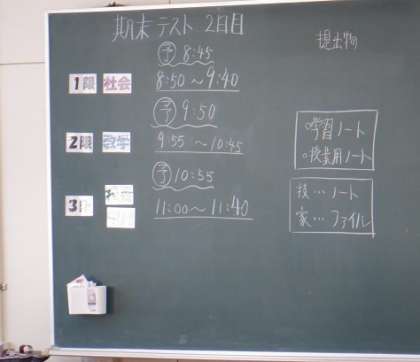 期末テスト 2日目
提出物
予 8:45
1限 社会 8:50～9:40
予 9:50
2限 数学 9:55～10:45
○学習ノート
○授業用ノート
予 10:55
3限 11:00～11:40
技…ノート
家…ファイル